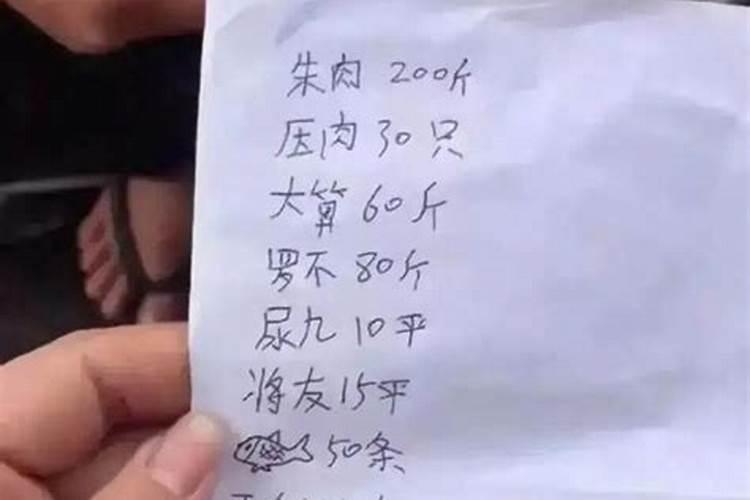 朱肉 200斤
压肉 30只
大算 60斤
罗不 80斤
尿九 10平
将友 15平
50条